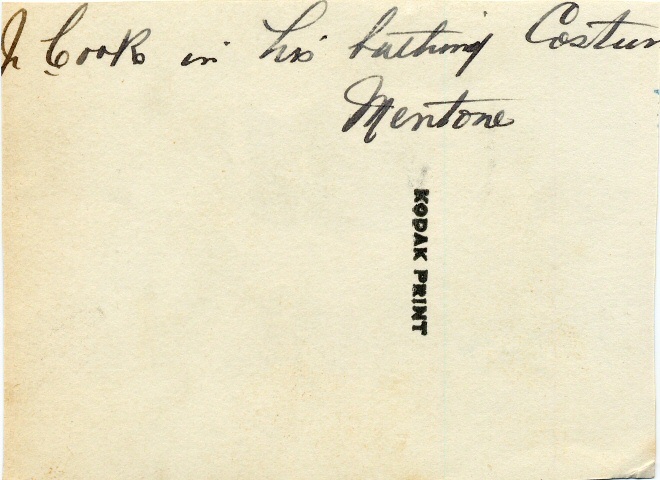 Cook in his bathing Costum
Mentone
KODAK PRINT